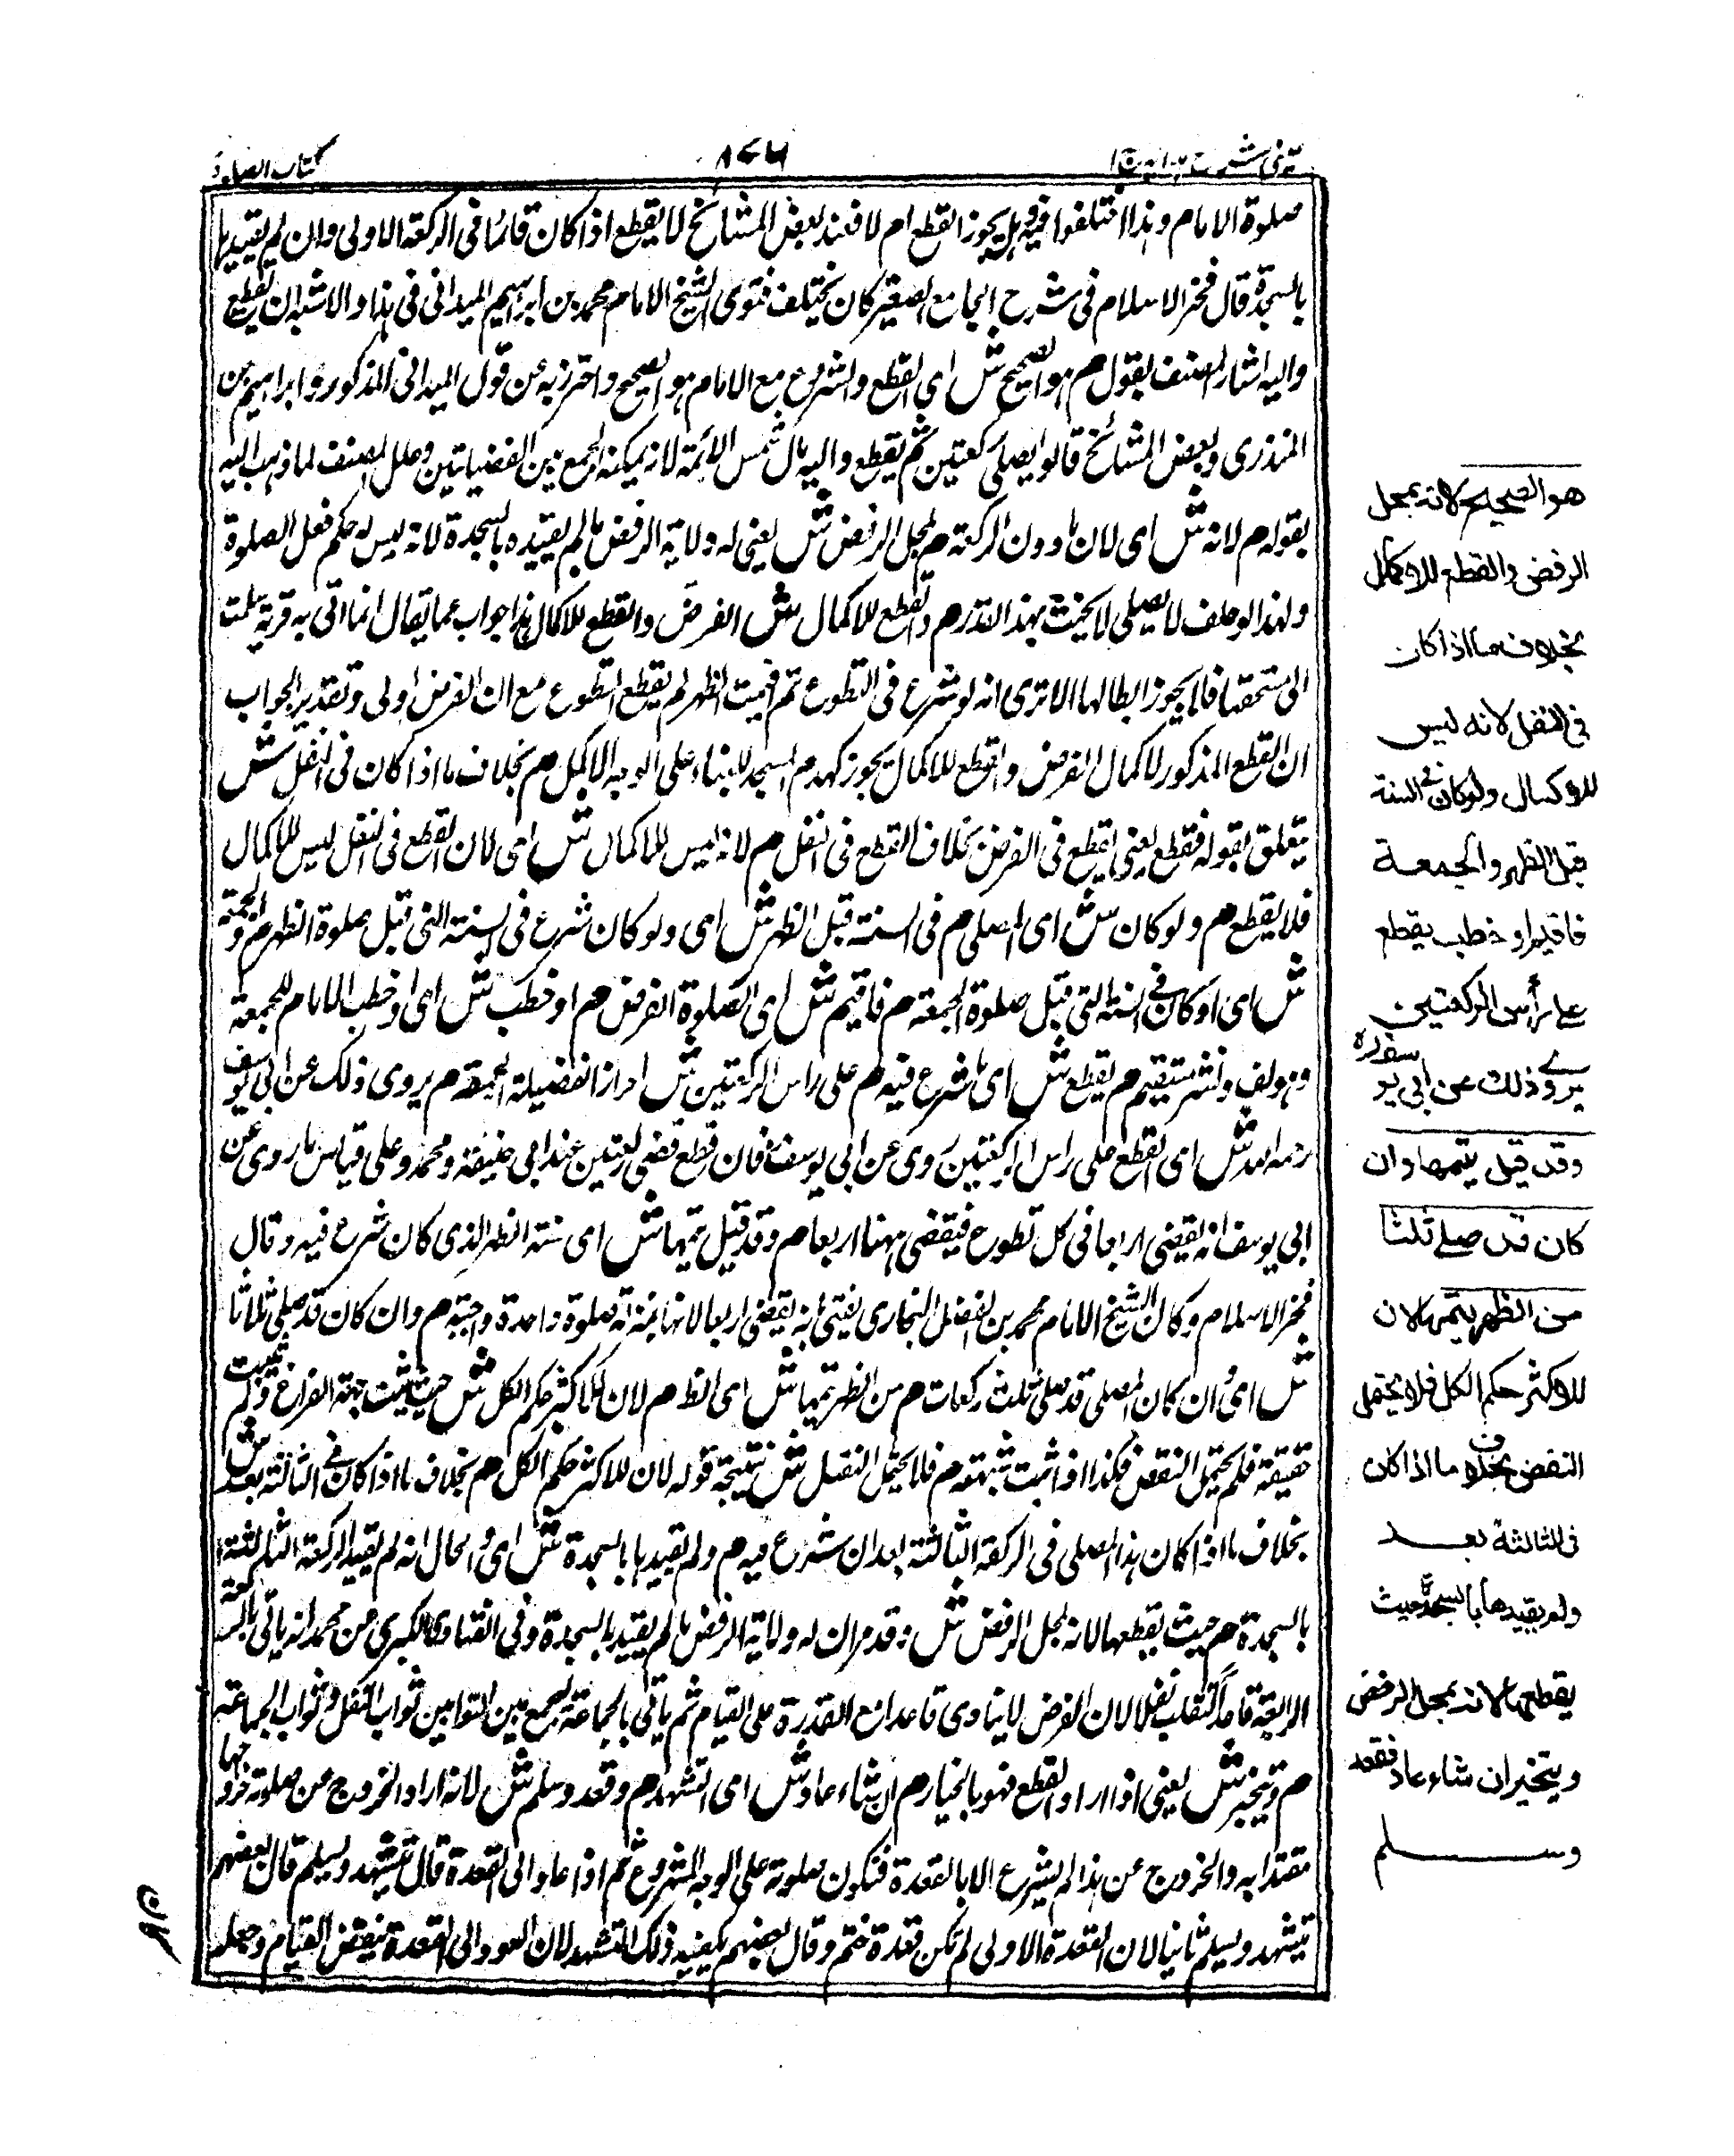 عینی شرح ہدایہ ج ا
٨٧٦
كتاب الصلوة
صلوة الامام وہذا اختلفوا فیہ وہل یجوز القطع ام لا فعند بعض المشائخ لا یقطع اذا كان قائما فی الركعة الاولى وان لم یقیدہا
بالسجدة قال فخر الاسلام فی شرح الجامع الصغیر كان یختلف فتوى الشیخ الامام محمد بن ابراہیم المیدانی فی ہذا والاشبہ ان یقطع
والیہ اشار المصنف بقولہ م ہو الصحیح ش ای القطع والشروع مع الامام ہو الصحیح واحترز بہ عن قول المیدانی المذكور و ابراہیم بن
المنذری وبعض المشائخ قالوا یصلی ركعتین ثم یقطع والیہ مال شمس الائمة لانہ یمكنہ الجمع بین الفضیلتین وعلل المصنف لما ذہب الیہ
بقولہ م لانہ ش ای لان ما دون الركعة م بمحل الرفض ش یعنی لہ ولایة الرفض ما لم یقیدہ بالسجدة لانہ لیس لہ حكم فعل الصلوة
ولہذا لو حلف لا یصلی لا یحنث بہذا القدر م والقطع للاكمال ش الفرض والقطع للاكمال ہذا جواب عما یقال انما اتى بہ قربة سلمت
الى مستحقہا فلا یجوز ابطالہا الا ترى انہ لو شرع فی التطوع ثم اقیمت الظہر لم یقطع التطوع مع ان الفرض اولى وتقدیر الجواب
ان القطع المذكور لاكمال الفرض والقطع للاكمال یجوز كہدم المسجد للبناء على الوجہ الاكمل م بخلاف ما اذا كان فی النفل ش
یتعلق بقولہ فقطع یعنی یقطع فی الفرض بخلاف القطع فی النفل م لانہ لیس للاكمال ش ای لان القطع فی النفل لیس للاكمال
فلا یقطع م ولو كان ش ای المصلی م فی السنة قبل الظہر ش ای ولو كان شرع فی السنة التی قبل صلوة الظہر م والجمعة
ش ای او كان فی السنة التی قبل صلوة الجمعة م فاقیم ش ای الصلوة الفرض م او خطب ش ای او خطب الامام للجمعة
وہو لف ونشر مستقیم م یقطع ش ای ما شرع فیہ م على راس الركعتین ش احرازا لفضیلة الجمعة م یروى ذلك عن ابی یوسف
رحمہ اللہ ش ای القطع على راس الركعتین روى عن ابی یوسف فان قطع قضى ركعتین عند ابی حنیفة ومحمد وعلى قیاس ما روى عن
ابی یوسف انہ یقضی اربعا فی كل تطوع فیقضی ہہنا اربعا م وقد قیل یتمہا ش ای سنة الظہر الذی كان شرع فیہ وقال
فخر الاسلام وكان الشیخ الامام محمد بن الفضل البخاری یفتی بانہ یقضی اربعا لانہا بمنزلة صلوة واحدة واجبة م وان كان قد صلى ثلاثا
ش ای وان كان المصلی قد صلى ثلث ركعات م من الظہر یتمہا ش ای الظہر م لان للاكثر حكم الكل ش حیث یثبت جہة الفراغ ولم یثبت
حقیقة فلم یحتمل النقض فكذا اذا ثبت شبہتہ م فلا یحتمل النقض ش نتیجة قولہ لان للاكثر حكم الكل م بخلاف ما اذا كان فی الثالثة بعد ش
بخلاف ما اذا كان ہذا المصلی فی الركعة الثالثة بعد ان شرع فیہ م ولم یقیدہا بالسجدة ش ای والحال انہ لم یقید الركعة الثالثة
بالسجدة م حیث یقطعہا لانہ بمحل الرفض ش وقد مر ان لہ ولایة الرفض ما لم یقید بالسجدة وفی الفتاوى الكبرى عن محمد انہ یاتی بالركعة
الرابعة قاعدا لتنقلب نفلا لان الفرض لا یتادى قاعدا مع القدرة على القیام ثم یاتی بالجماعة لیجمع بین الثوابین ثواب النفل وثواب الجماعة
م ویتخیر ش یعنی اذا اراد القطع فہو بالخیار م ان شاء عاد ش ای التشہد م وقعد وسلم ش لانہ اراد الخروج عن صلوتہ خروجا
معتدا بہ والخروج عن ہذا لم یشرع الا بالقعدة فتكون صلوتہ على الوجہ المشروع ثم اذا عاد الى القعدة قال یتشہد ویسلم قال بعضہم
یتشہد ویسلم ثانیا لان القعدة الاولى لم تكن قعدة ختم وقال بعضہم یكفیہ ذلك التشہد لان العود الى القعدة ینقض القیام وجعلہ
كان
هو الصحيح لانه بمحل
الرفض والقطع للاكمال
بخلاف ما اذا كان
فی النفل لانه ليس
للاكمال ولو كان فی السنة
قبل الظهر والجمعة
فاقيم او خطب يقطع
على رأس الركعتين
يروى ذلك عن ابي يوسف ره
وقد قيل يتمها وان
كان قد صلے ثلثا
من الظهر يتمها لان
للاكثر حكم الكل فلا يحتمل
النقض بخلاف ما اذا كان
فى الثالثة بعد
ولم يقيدها بالسجدة حيث
يقطعها لانه بمحل الرفض
ويتخير ان شاء عاد فقعد
وسلم